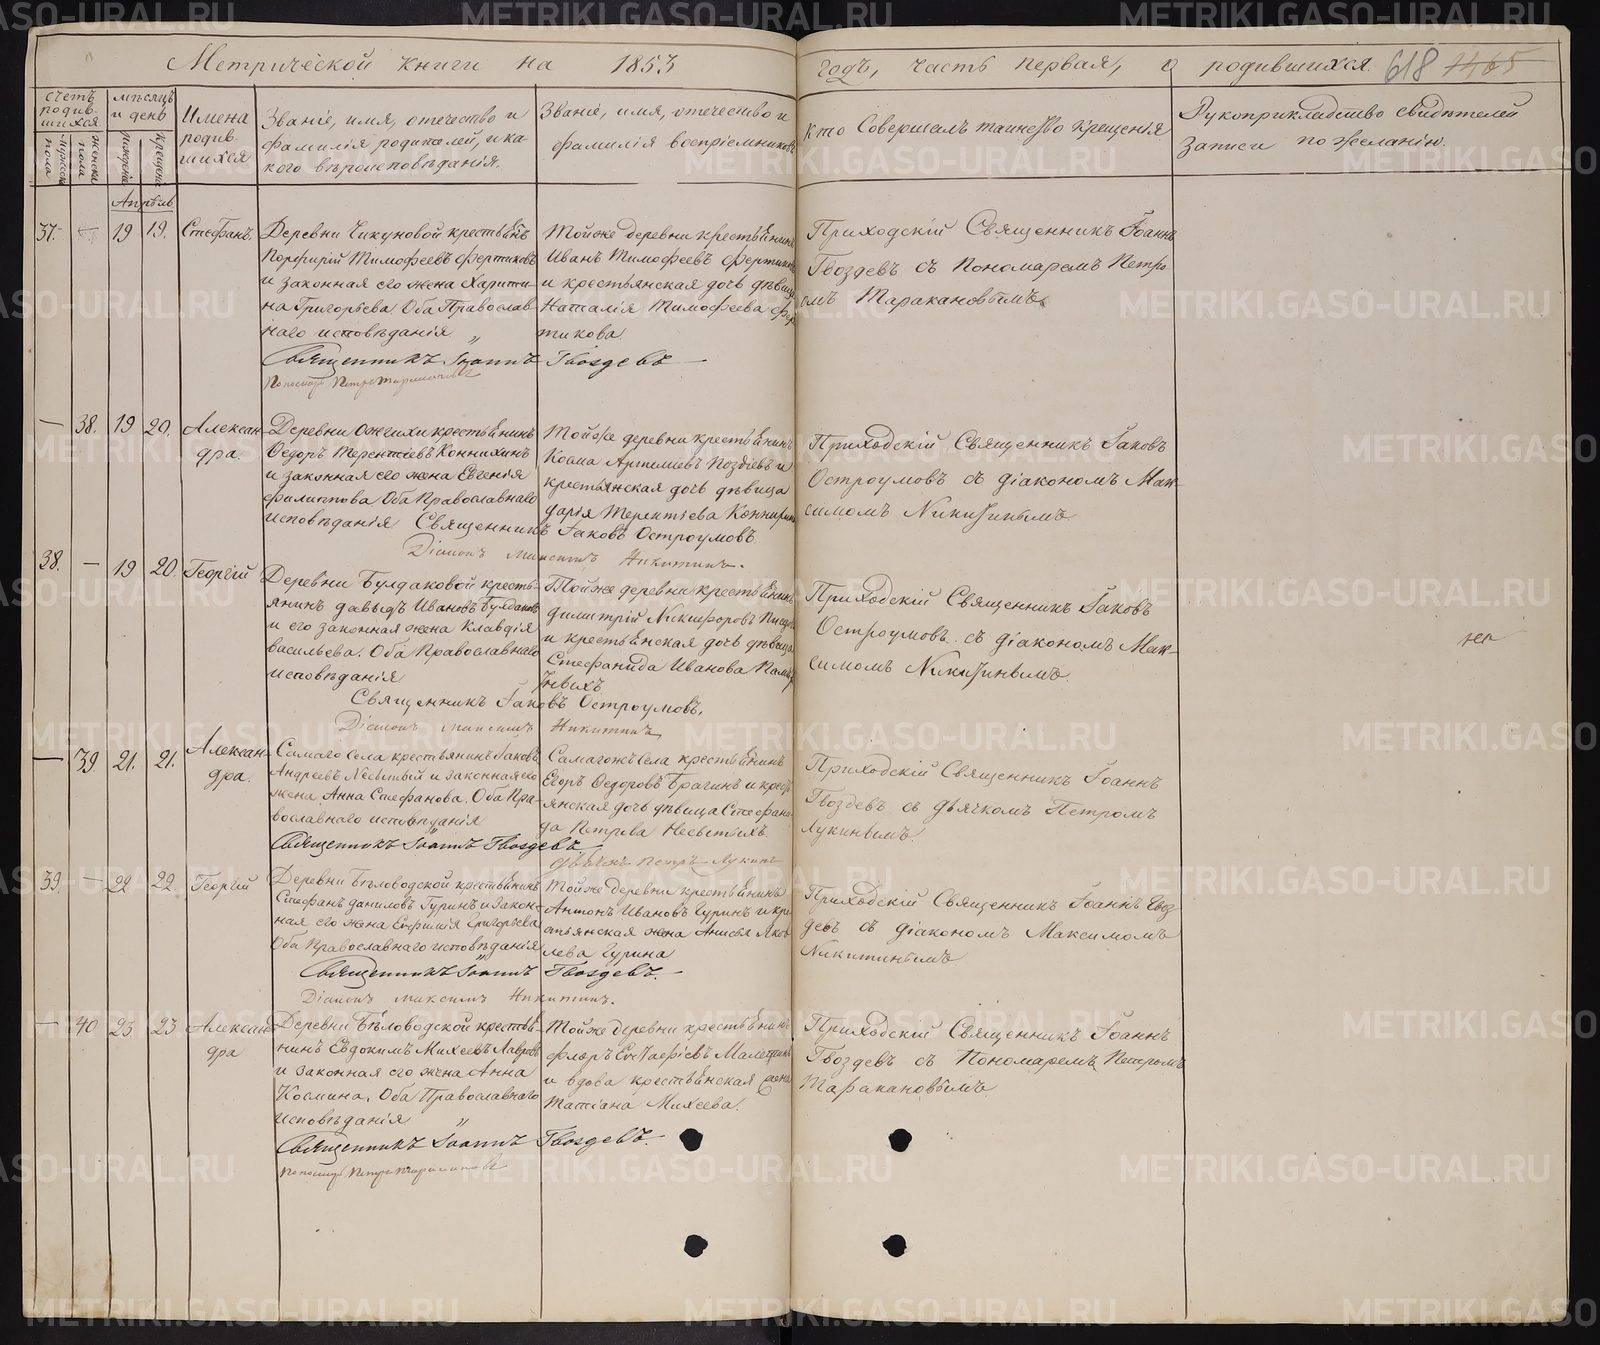 Метрической книги на 1853 годъ, часть первая, о родившихся. 618 1465
счетъ родив-шихся
мужеска пола
женска пола
мѣсяцъ и день
рожденія
крещенія
Имена
родив-
шихся
Званіе, имя, отечество и
фамилія родителей, и ка-
кого вѣроисповѣданія.
Званіе, имя, отечество и
фамилія воспріемниковъ
кто Совершалъ таинство крещенія
Рукоприкладство свидѣтелей
записи по желанію.
Апрѣль
37. — 19 19. Стефанъ.
Деревни Чикуновой крестьянинъ
Порфирій Тимофеевъ Фертиковъ
и законная его жена Харити-
на Григорьева Оба Православ-
наго исповѣданія „
Тойже деревни крестьянинъ
Иванъ Тимофеевъ Фертиковъ
и крестьянская дочь дѣвица
Наталія Тимофеева Фер
тикова.
Приходскій Священникъ Іоаннъ
Гвоздевъ съ Пономаремъ Петро
мъ Таракановымъ.
Священникъ Іоаннъ Гвоздевъ
Пономарь Петръ Таракановъ
— 38. 19 20. Алексан-
дра.
Деревни Ожгихи крестьянинъ
Федоръ Терентіевъ Коннихинъ
и законная его жена Евгенія
Филиппова Оба Православнаго
исповѣданія
Тойже деревни крестьянинъ
Козма Артеміевъ Поздѣевъ и
крестьянская дочь дѣвица
Дарія Терентіева
Приходскій Священникъ Іаковъ
Остроумовъ съ діакономъ Мак-
симомъ Никитинымъ.
Священникъ Іаковъ Остроумовъ
Діаконъ Максимъ Никитинъ.
38. — 19 20. Георгій
Деревни Булдаковой кресть-
янинъ Давыдъ Ивановъ Булдаковъ
и его законная жена Клавдія
Васильева. Оба Православнаго
исповѣданія
Тойже деревни крестьянинъ
Димитрій Никифоровъ
и крестьянская дочь дѣвица
Стефанида Иванова
Приходскій Священникъ Іаковъ
Остроумовъ. съ діакономъ Мак-
симомъ Никитинымъ.
Священникъ Іаковъ Остроумовъ.
Діаконъ Максимъ Никитинъ
— 39. 21. 21. Алексан-
дра.
Самаго села крестьянинъ Іаковъ
Андреевъ Несвитый и законная его
жена Анна Стефанова. Оба Пра-
вославнаго исповѣданія
Самагожъ села крестьянинъ
Егоръ Федоровъ Брагинъ и крест
янская дочь дѣвица Стефани-
да Петрова Несвитыхъ
Приходскій Священникъ Іоаннъ
Гвоздевъ съ дьячкомъ Петромъ
Лукинымъ.
Священникъ Іоаннъ Гвоздевъ
Дьячекъ Петръ Лукинъ
39. — 22 22. Георгій
Деревни Бѣловодской крестьянинъ
Стефанъ Даниловъ Гуринъ и закон-
ная его жена Евфимія Григорьева
Оба Православнаго исповѣданія
Тойже деревни крестьянинъ
Антонъ Ивановъ Гуринъ и кре
стьянская жена Анисья Яков
лева Гурина
Приходскій Священникъ Іоаннъ Гвоз
девъ съ діакономъ Максимомъ
Никитинымъ
Священникъ Іоаннъ Гвоздевъ.
Діаконъ Максимъ Никитинъ.
— 40 23 23 Алексан
дра
Деревни Бѣловодской крестья-
нинъ Евдокимъ Михеевъ Лавровъ
и законная его жена Анна
Космина. Оба Православнаго
исповѣданія „
Тойже деревни крестьянинъ
Флоръ Евстафіевъ
и вдова крестьянская жена
Татіана Михеева.
Приходскій Священникъ Іоаннъ
Гвоздевъ съ Пономаремъ Петромъ
Таракановымъ
Священникъ Іоаннъ Гвоздевъ.
Пономарь Петръ Таракановъ
METRIKI.GASO-URAL.RU